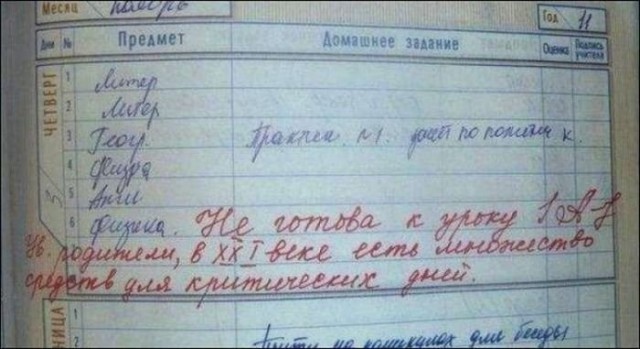 Месяц ноябрь Год 11
Дни № Предмет Домашнее задание Оценка Подпись учителя
ЧЕТВЕРГ
3
1 Литер
2 Литер
3 Геогр. Практич. №1. по
4 Физра
5 Англ
6 Физика. Не готова к уроку
Ув. родители, в XXI веке есть множество
средств для критических дней.
НИЦА
1
2 на каникулах для беседы